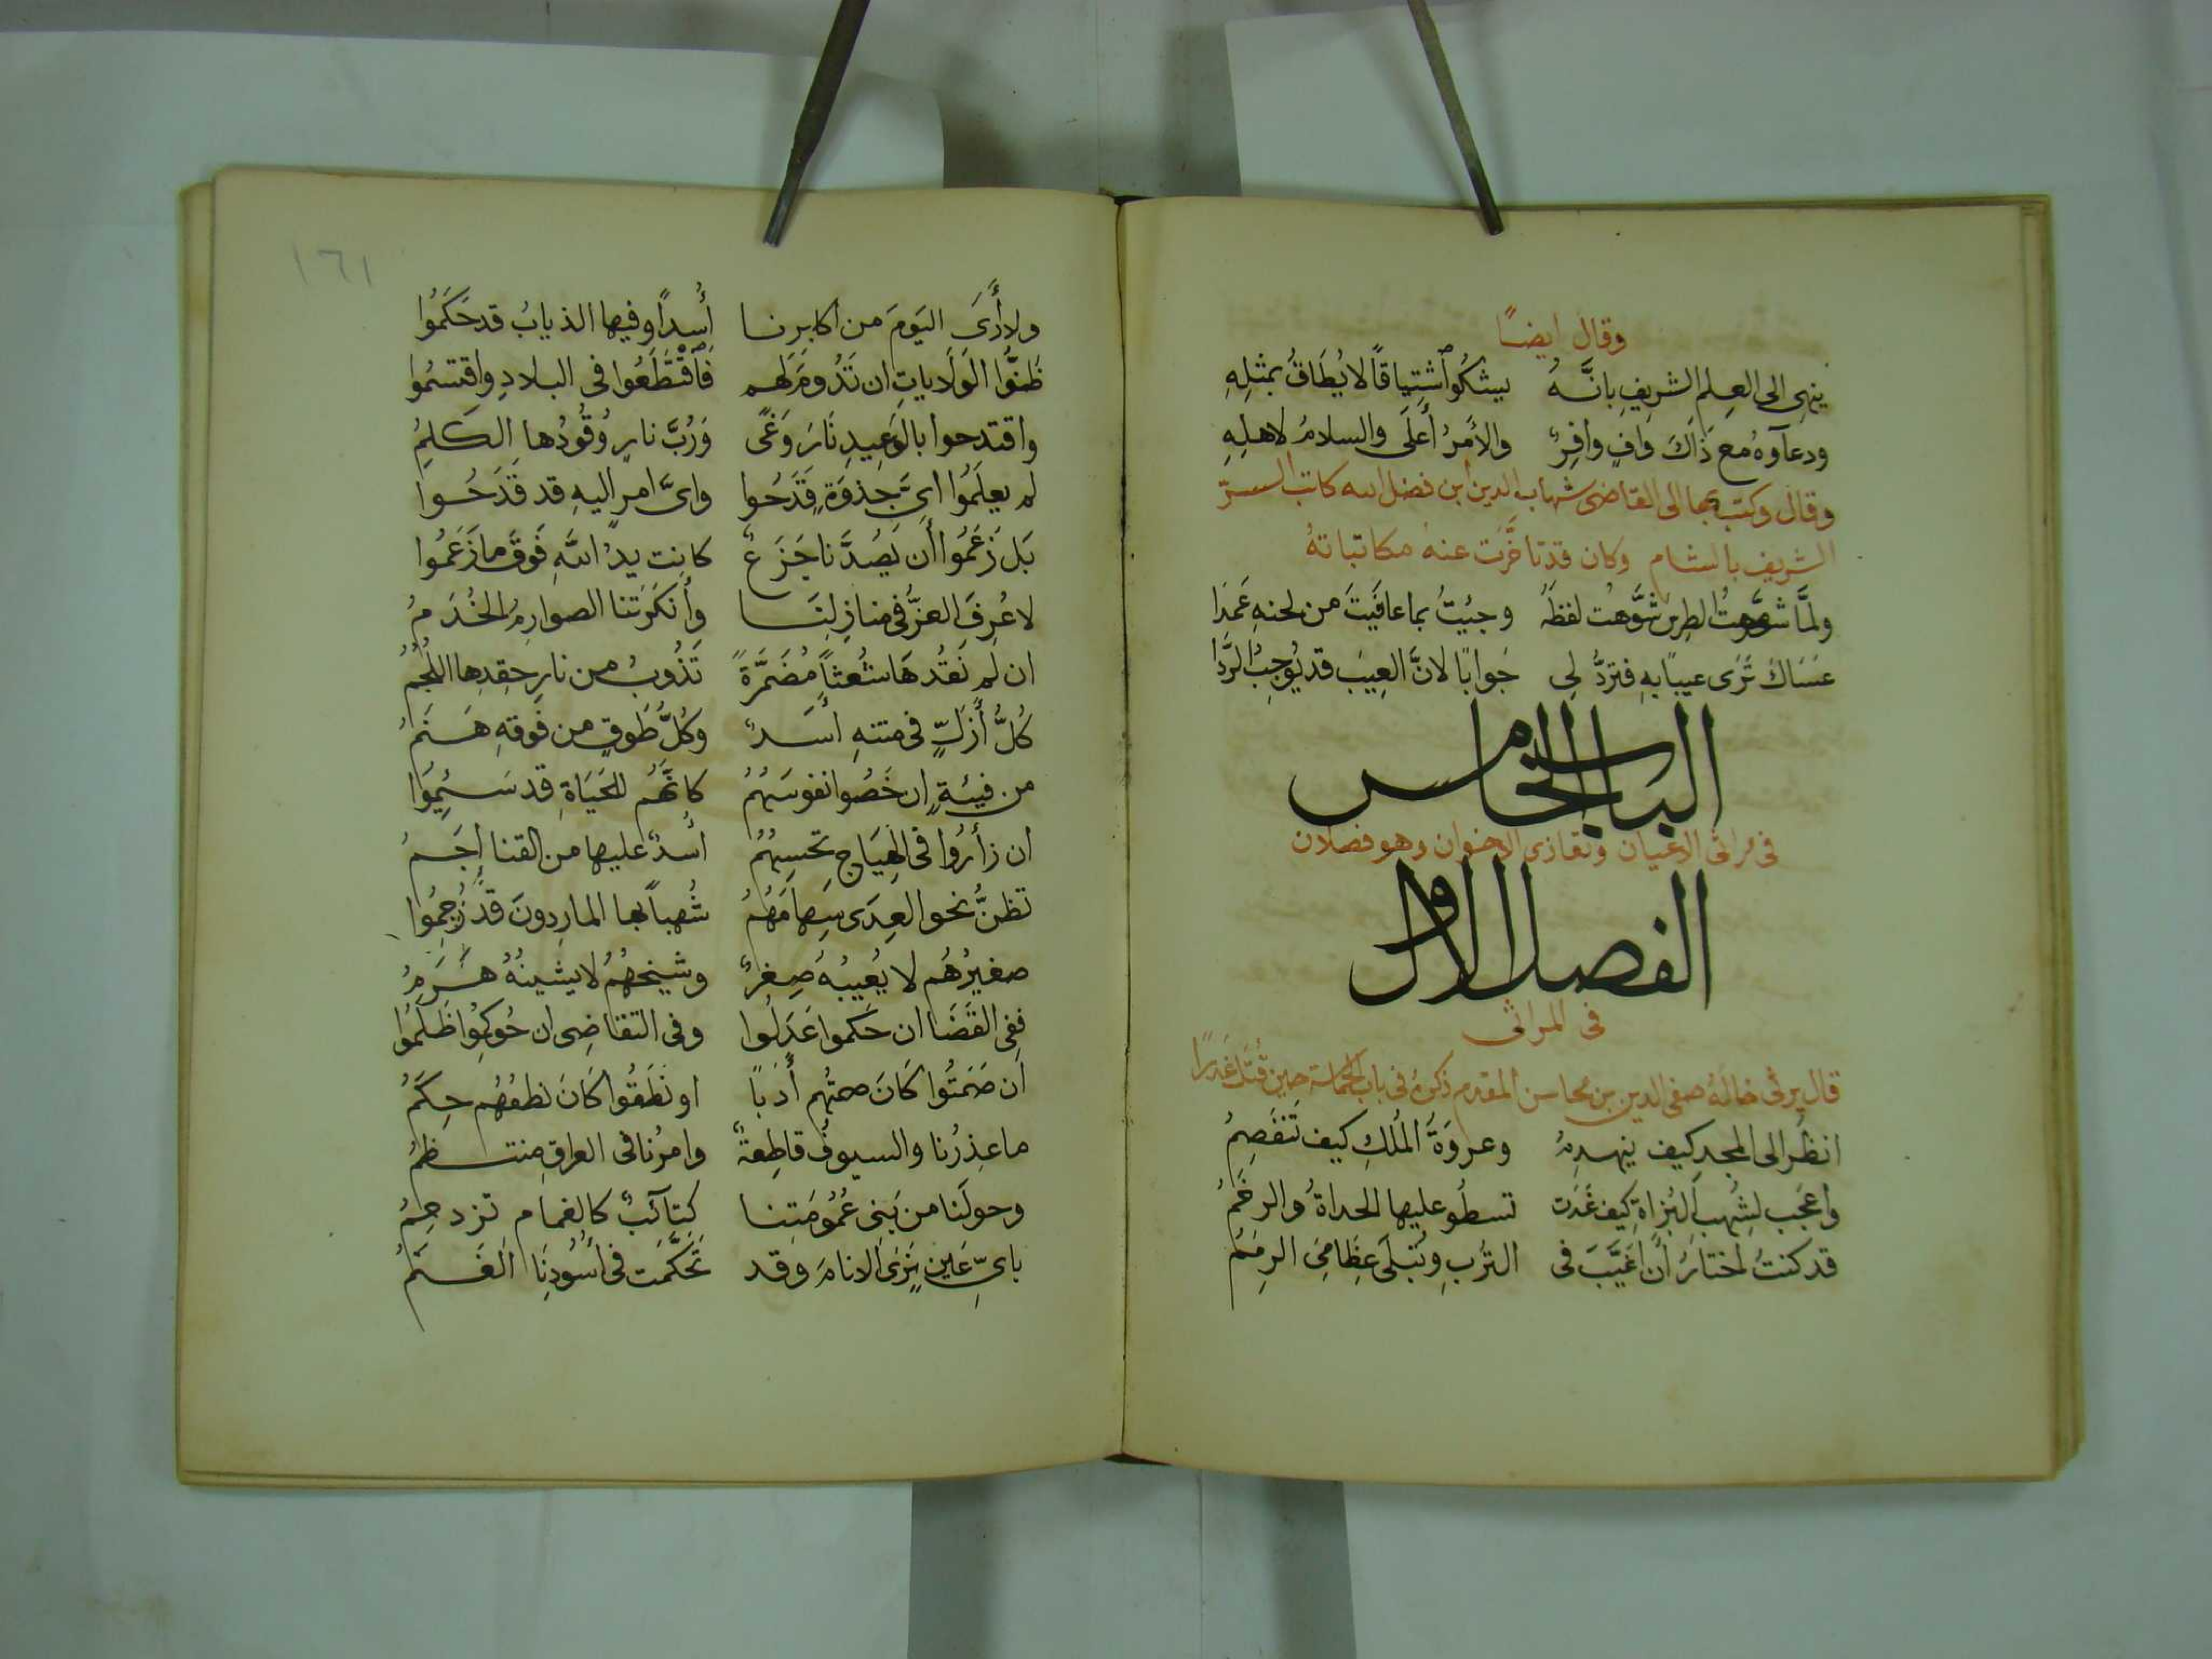 وقال ايضًا
ينهى الى العِلمِ الشريفِ بانَّهُ يشكُو اشتِياقًا لا يُطَاقُ بمثلِهِ
ودعآوهُ مع ذَاكَ وافٍ وافِرٌ والأمرُ أَعلَى والسلامُ لاهلِهِ
وقال وكتب بها الى القاضى شهاب الدين ابن فضل الله كاتب السرّ
الشريف بالشام وكان قد تاخَّرَت عنهُ مكاتباتهُ
ولمَّا شهت الطِرس شَوَّهت لفظَهُ وجئِتُ بما عافَيتَ من لحنهِ عَمدَا
عَسَاكَ تَرَى عيبًا بهِ فتردُّ لى جَوابًا لانَّ العَيبَ قد يُوجِبُ الرَّدَّا
الباب الخامس
فى مراثى الاعيان وتعازى الاخوان وهو فصلان
الفصل الاول
فى المراثى
قال يرثى خالَهُ صفى الدين بن محاسن المقدم ذكرهُ فى باب الحماسة حين قُتل غَدرًا
انظُر الى المجدِ كيف ينهدِمُ وعروَةُ المُلكِ كيف تَنفَصِمُ
واعجَب لِشُهبِ البُزاةِ كيف غَدَت تسطُو عليها الحداةُ والرخَمُ
قد كنتُ اختارُ أن اغَيَّبَ فى التُربِ وتَبلَى عِظَامِىَ الرِمَمُ
١٦١
ولا أَرَى اليَومَ من اكابِرنا أُسدًا وفيها الذيابُ قد حَكَمُوا
ظَنوُّا الوَلَاياتِ ان تَدُومَ لهم فَاقتَطَعُوا فى البلادِ واقتسمُوا
واقتدحوا بالوَعِيدِ نَارَ وَغًى وَرُبَّ نارٍ وُقُودُها الكَلِمُ
لم يعلَمُوا اىَّ جذوَةٍ قَدَحُوا واىَّ امرٍ اليهِ قد قَدَحُوا
بَل زَعَمُوا أَن يَصُدَّنا جَزَعٌ كانت يدُ اللهِ فَوقَ ما زَعَمُوا
لا عُرِفَ العزُّ فى منازِلِنَا وأنكَرَتنا الصوارِمُ الخُذَمُ
ان لم نَقُدهَا شُعثًا مُضَمَّرَةً تَذُوبُ من نارِ حِقدِها اللُّجُمُ
كُلُّ أَزَلٍّ فى متنهِ أَسَدٌ وكلُّ طَوقٍ من فَوقهِ هَشَمُ
من فِيئةٍ ارخَصُوا نفوسَهُمُ كانَّهُم للحَيَاةِ قد سَئِمُوا
ان زأَرُوا فى الهِيَاجِ تحسبهُمُ اُسدٌ عليها من القنا أَجَمُ
تظنُّ نحو العِدَى سِهامَهُمُ شُهبًا بها المارِدونَ قد رُجِمُوا
صغيرُهُم لا يُعيبُهُ صِغرٌ وشيخهُمُ لا يشينهُ هَرَمُ
ففى القَضَا ان حَكموا عَدَلُوا وفى التقاضِى ان حُوكِمُوا ظَلَمُوا
ان صَمَتُوا كَانَ صمتُهم أَدَبًا او نطَقُوا كَانَ نطقُهُم حِكَمُ
ما عِذرُنا والسيوفُ قاطِعةٌ وامرُنا فى العراقِ منتظمُ
وحولَنا من بَنِى عُمُومَتِنا كتآئبٌ كالغمام تزدحِمُ
باىِّ عَينٍ نَرَى الانامَ وقد تَحَكَّمَت فى اُسُودِنَا الغَنَمُ